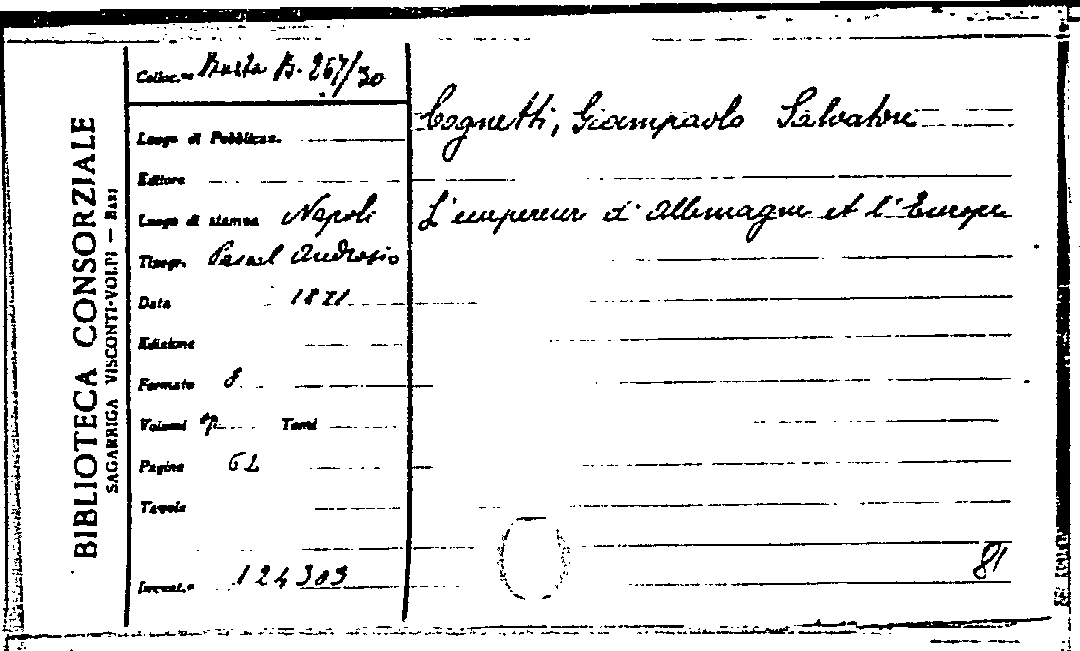 BIBLIOTECA CONSORZIALE
SAGARRIGA VISCONTI-VOLPI — BARI
Colloc.ne Busta B. 267/30
Luogo di Pubblicaz.
Editore
Luogo di stampa Napoli
Tipogr. Pascal Androsio
Data 1871
Edizione
Formato 8
Volumi Tomi
Pagine 62
Tavole
Invent.o 124303
Cognetti, Giampaolo Salvatore
L'empereur d'Allemagne et l'Europe
81